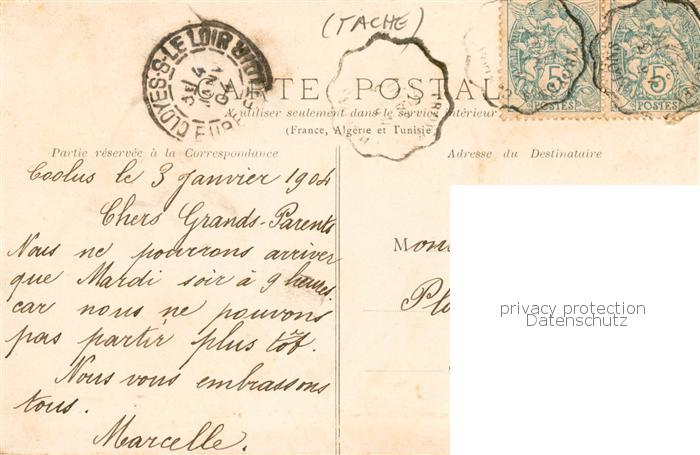 (TACHE)
CLOYES-S-LE LOIR
EURE-ET
5c 5c
POSTES POSTES
TE POSTAL
A utiliser seulement dans le service intérieur
(France, Algérie et Tunisie)
Partie réservée à la Correspondance
Coolus le 3 Janvier 1904
Chers Grands-Parents
Nous ne pouverons arriver
que Mardi soir à 9 heures
car nous ne pouvons
pas partir plus tôt.
Nous vous embrassons
tous.
Marcelle.
Adresse du Destinataire
Mons
Pl
privacy protection
Datenschutz